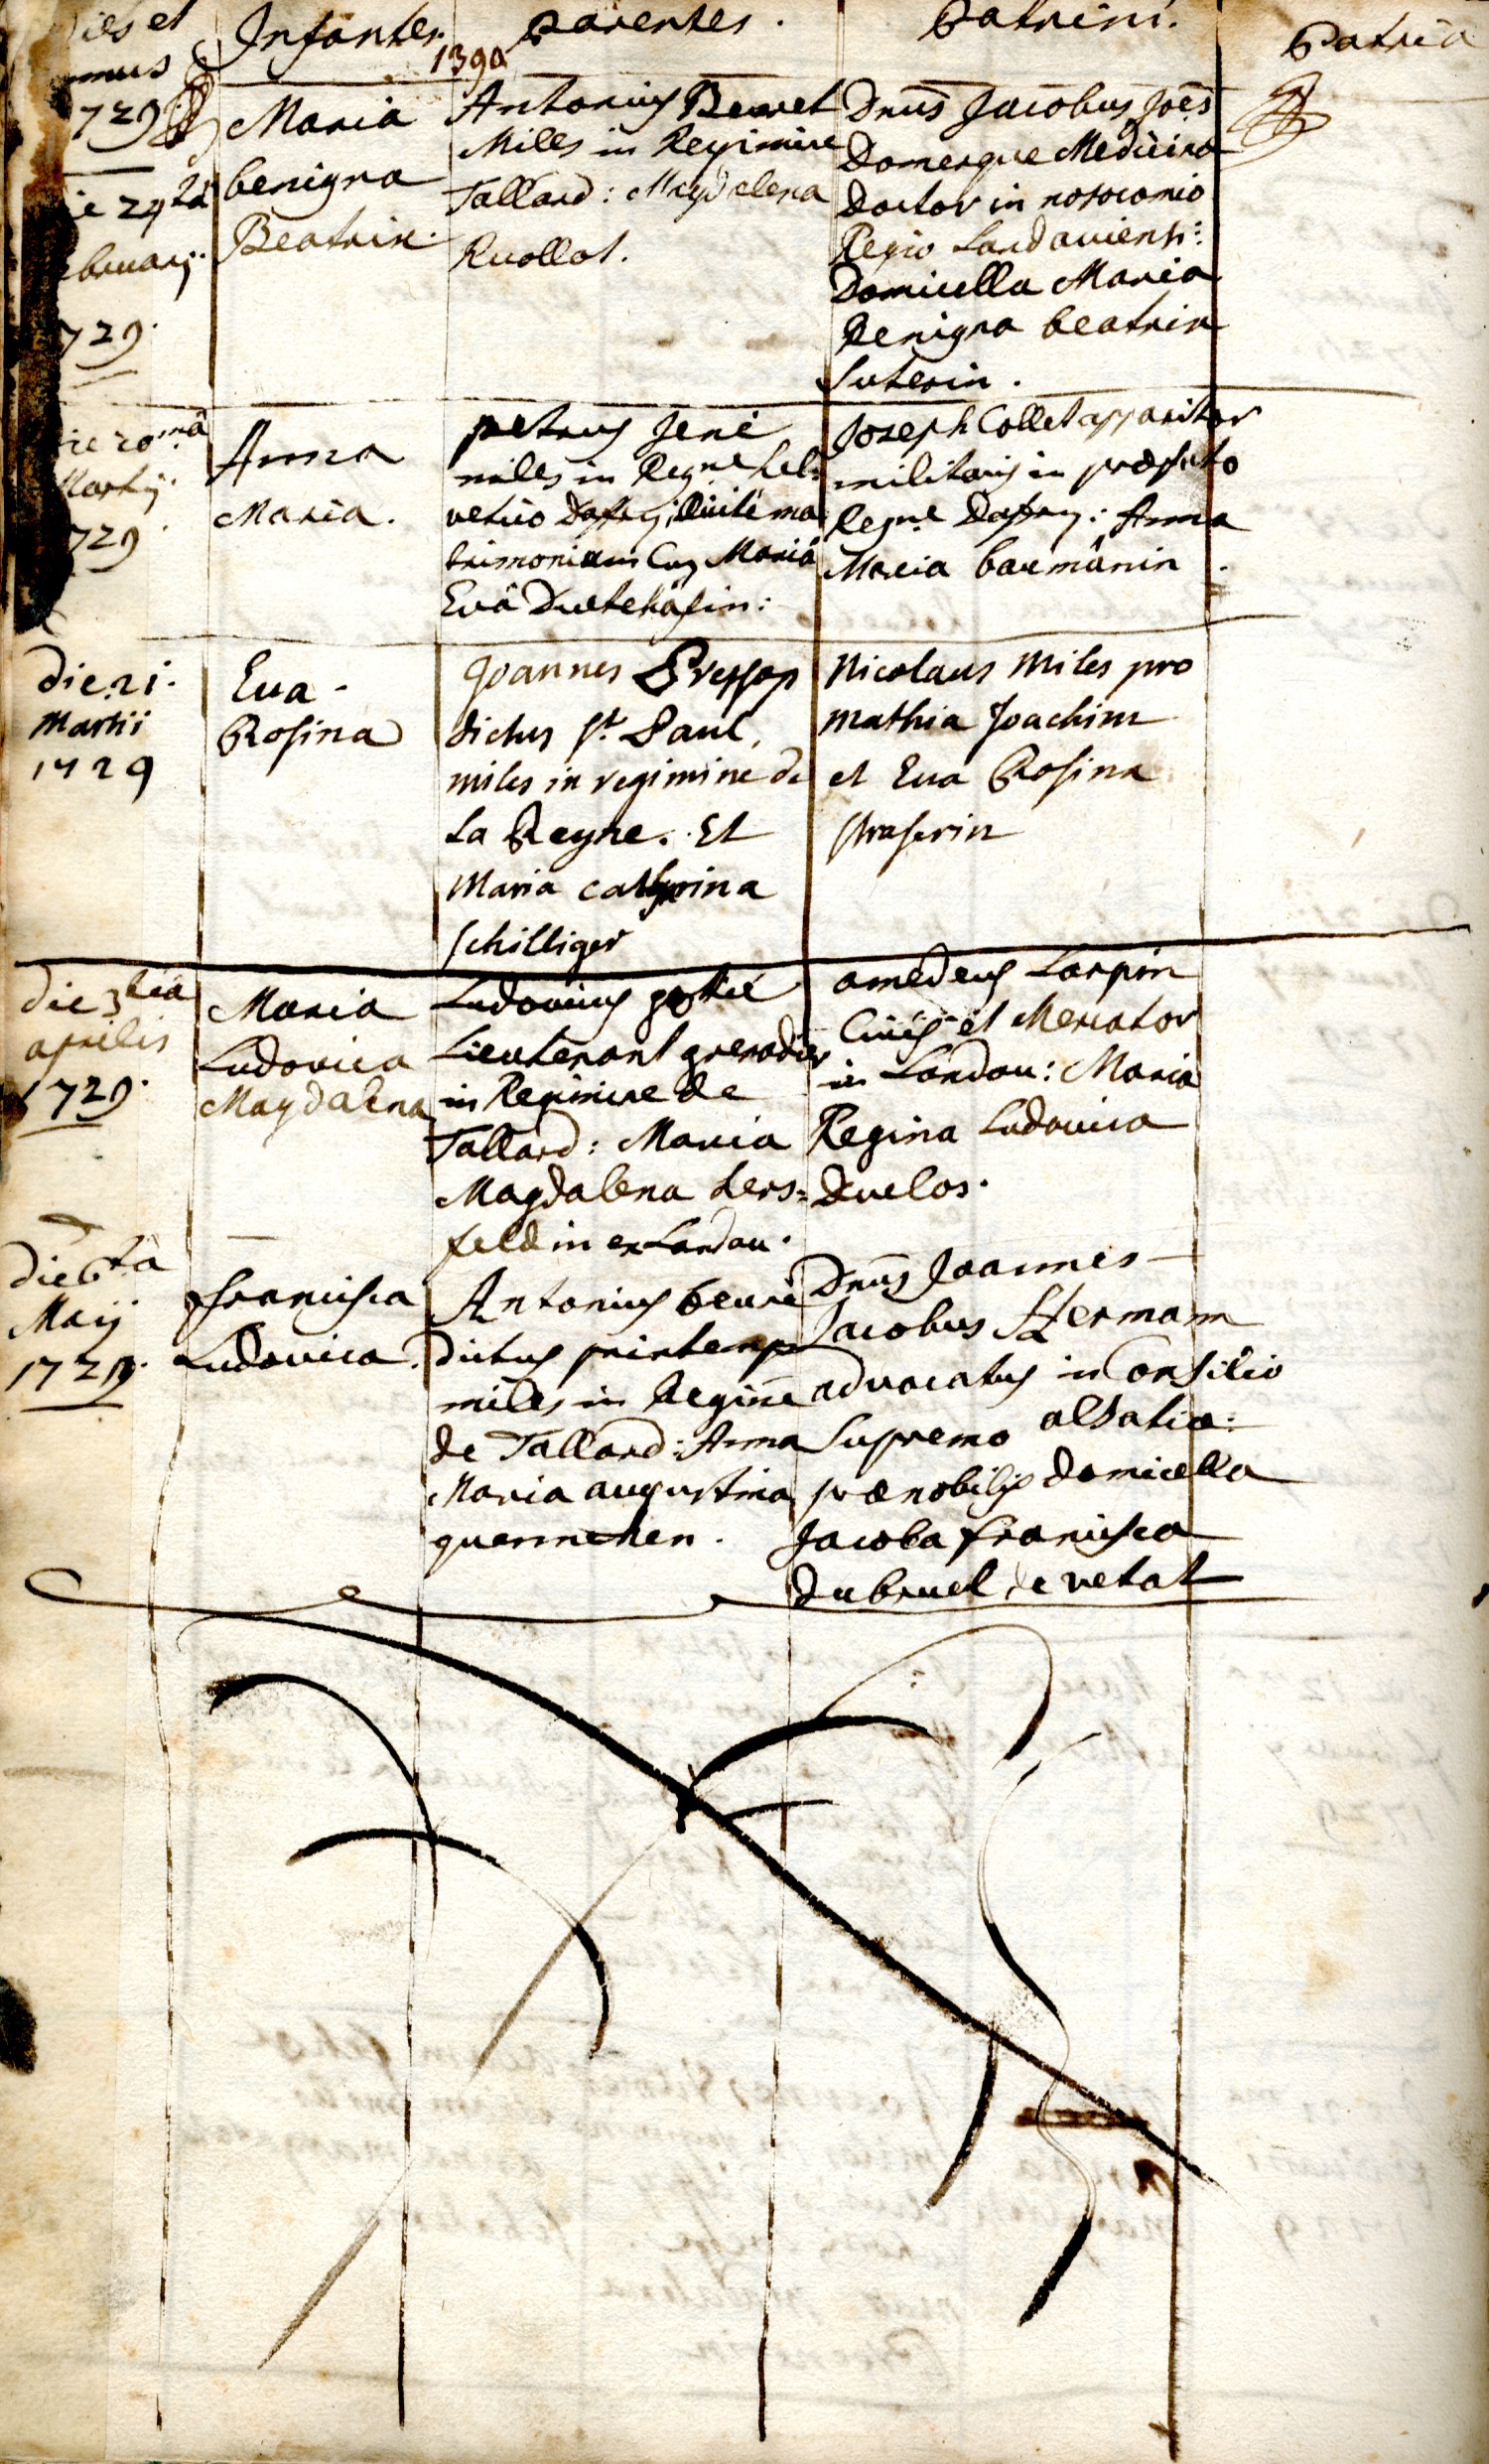 Dies et
Infantes
Parentes.
Patrini.
Patria
annus
1390
1729
Maria
benigna
Beatrix.
Die 24ta
Februarij.
1729.
Antonius Beuret
Miles in Regimine
Tallard: Magdelena
Ruollot.
Dnus Jacobus Joes
Domergue Medicina
Doctor in nosocomio
Regio Landaviensi:
Domicella Maria
Benigna beatrix
Suterin.
Die 20ma
Martij.
1729.
Anna
Maria.
petrus Jené
miles in Regne hel=
vetico Daffry; Civite ma
trimonium Cum Mariâ
Evâ
Joseph Collet apparitor
militaris in præfato
Regne Daffry: Anna
Maria barmânin.
Die 21.
Martii
1729
Eua
Rosina
Joannes Pressop
dictus St Paul,
miles in regimine de
La Reyne. Et
Maria catharina
schilliger
Nicolaus Miles pro
Mathia Joachim
et Eua Rosina
straserin
die 3tia
aprilis
1729.
Maria
Ludovica
Magdalena
Ludovicus
Lieutenant grenadier
in Regimine de
Tallard: Maria
Magdalena hers=
feldin ex Landau.
amedeus Larpin
Civis et Mercator
in Landau: Maria
Regina Ludovica
Duclos.
Die 6ta
Maij
1729.
Francisca
Ludovica.
Antonius beuré
dictus printemps
miles in Regine
de Tallard: Anna
Maria augustina
Dnus Joannes
Jacobus Hermann
advocatus in Consilio
Supremo alsatiæ:
prænobilis domicella
Jacoba francisca
dubruel de vetat